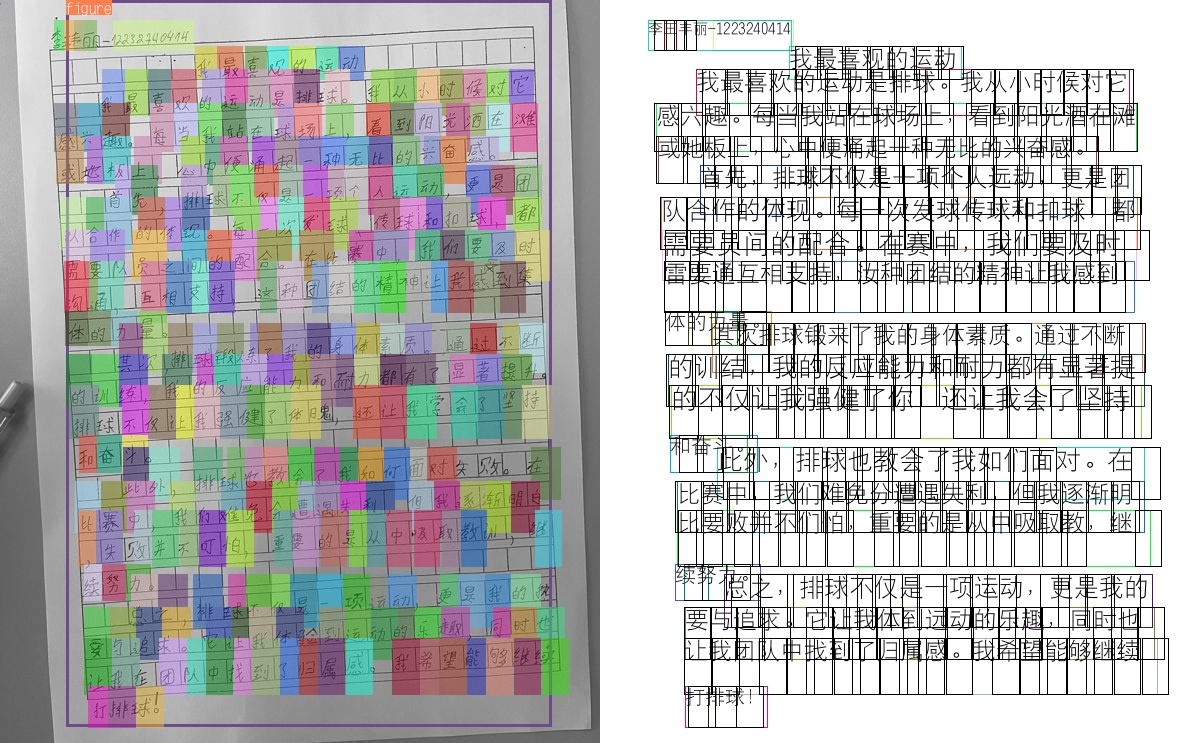 figure
李田丰丽-1223240414
我最喜观的运动
我最喜欢的运动是排球。我从小时候对它
感兴趣。每当我站在球场上,看到阳光洒在滩
或地板上,心中便涌起一种无比的兴奋感。
首先,排球不仅是一项个人运动,更是团
队合作的体现。每一次发球、传球和扣球,都
需要队员之间的配合。在比赛中,我们要及时
沟通,互相支持,这种团结的精神让我感到集
体的力量。
其次,排球锻炼了我的身体素质。通过不断
的训练,我的反应能力和耐力都有了显著提升。
排球不仅让我强健了体魄,还让我学会了坚持
和奋斗。
此外,排球也教会了我如何面对失败。在
比赛中,我们难免会遭遇失利,但我逐渐明白
,失败并不可怕,重要的是从中吸取教训,继
续努力。
总之,排球不仅是一项运动,更是我的热
要与追求。它让我体验到运动的乐趣,同时也
让我在团队中找到了归属感。我希望能够继续
打排球!
李田丰丽-1223240414
我最喜观的运动
我最喜欢的运动是排球。我从小时候对它
感六趣。每当我站在球场上,看到阳光酒在滩
或地板上,心中便涌起一种无比的兴奋感。
首先,排球不仅是一项个人运动,更是团
队合作的体现。每一次发球传球和扣球,都
需要员间的配合。在赛中,我们要及时
雷要通互相支持,汝种团结的精神让我感到
体的力量。
其次排球锻来了我的身体素质。通过不断
的训结,我的反应能力和耐力都有显著提
的不仅让我强健了你,还让我会了坚持
和奋斗。
此外,排球也教会了我如们面对。在
比赛中,我们难免分遭遇失利,但我逐渐明
比要败并不们怕,重要的是从中吸取教,继
续努力。
总之,排球不仅是一项运动,更是我的
要与追球。它让我体到远动的乐趣,同时也
让我团队中找到了归属感。我希望能够继续
打排球!